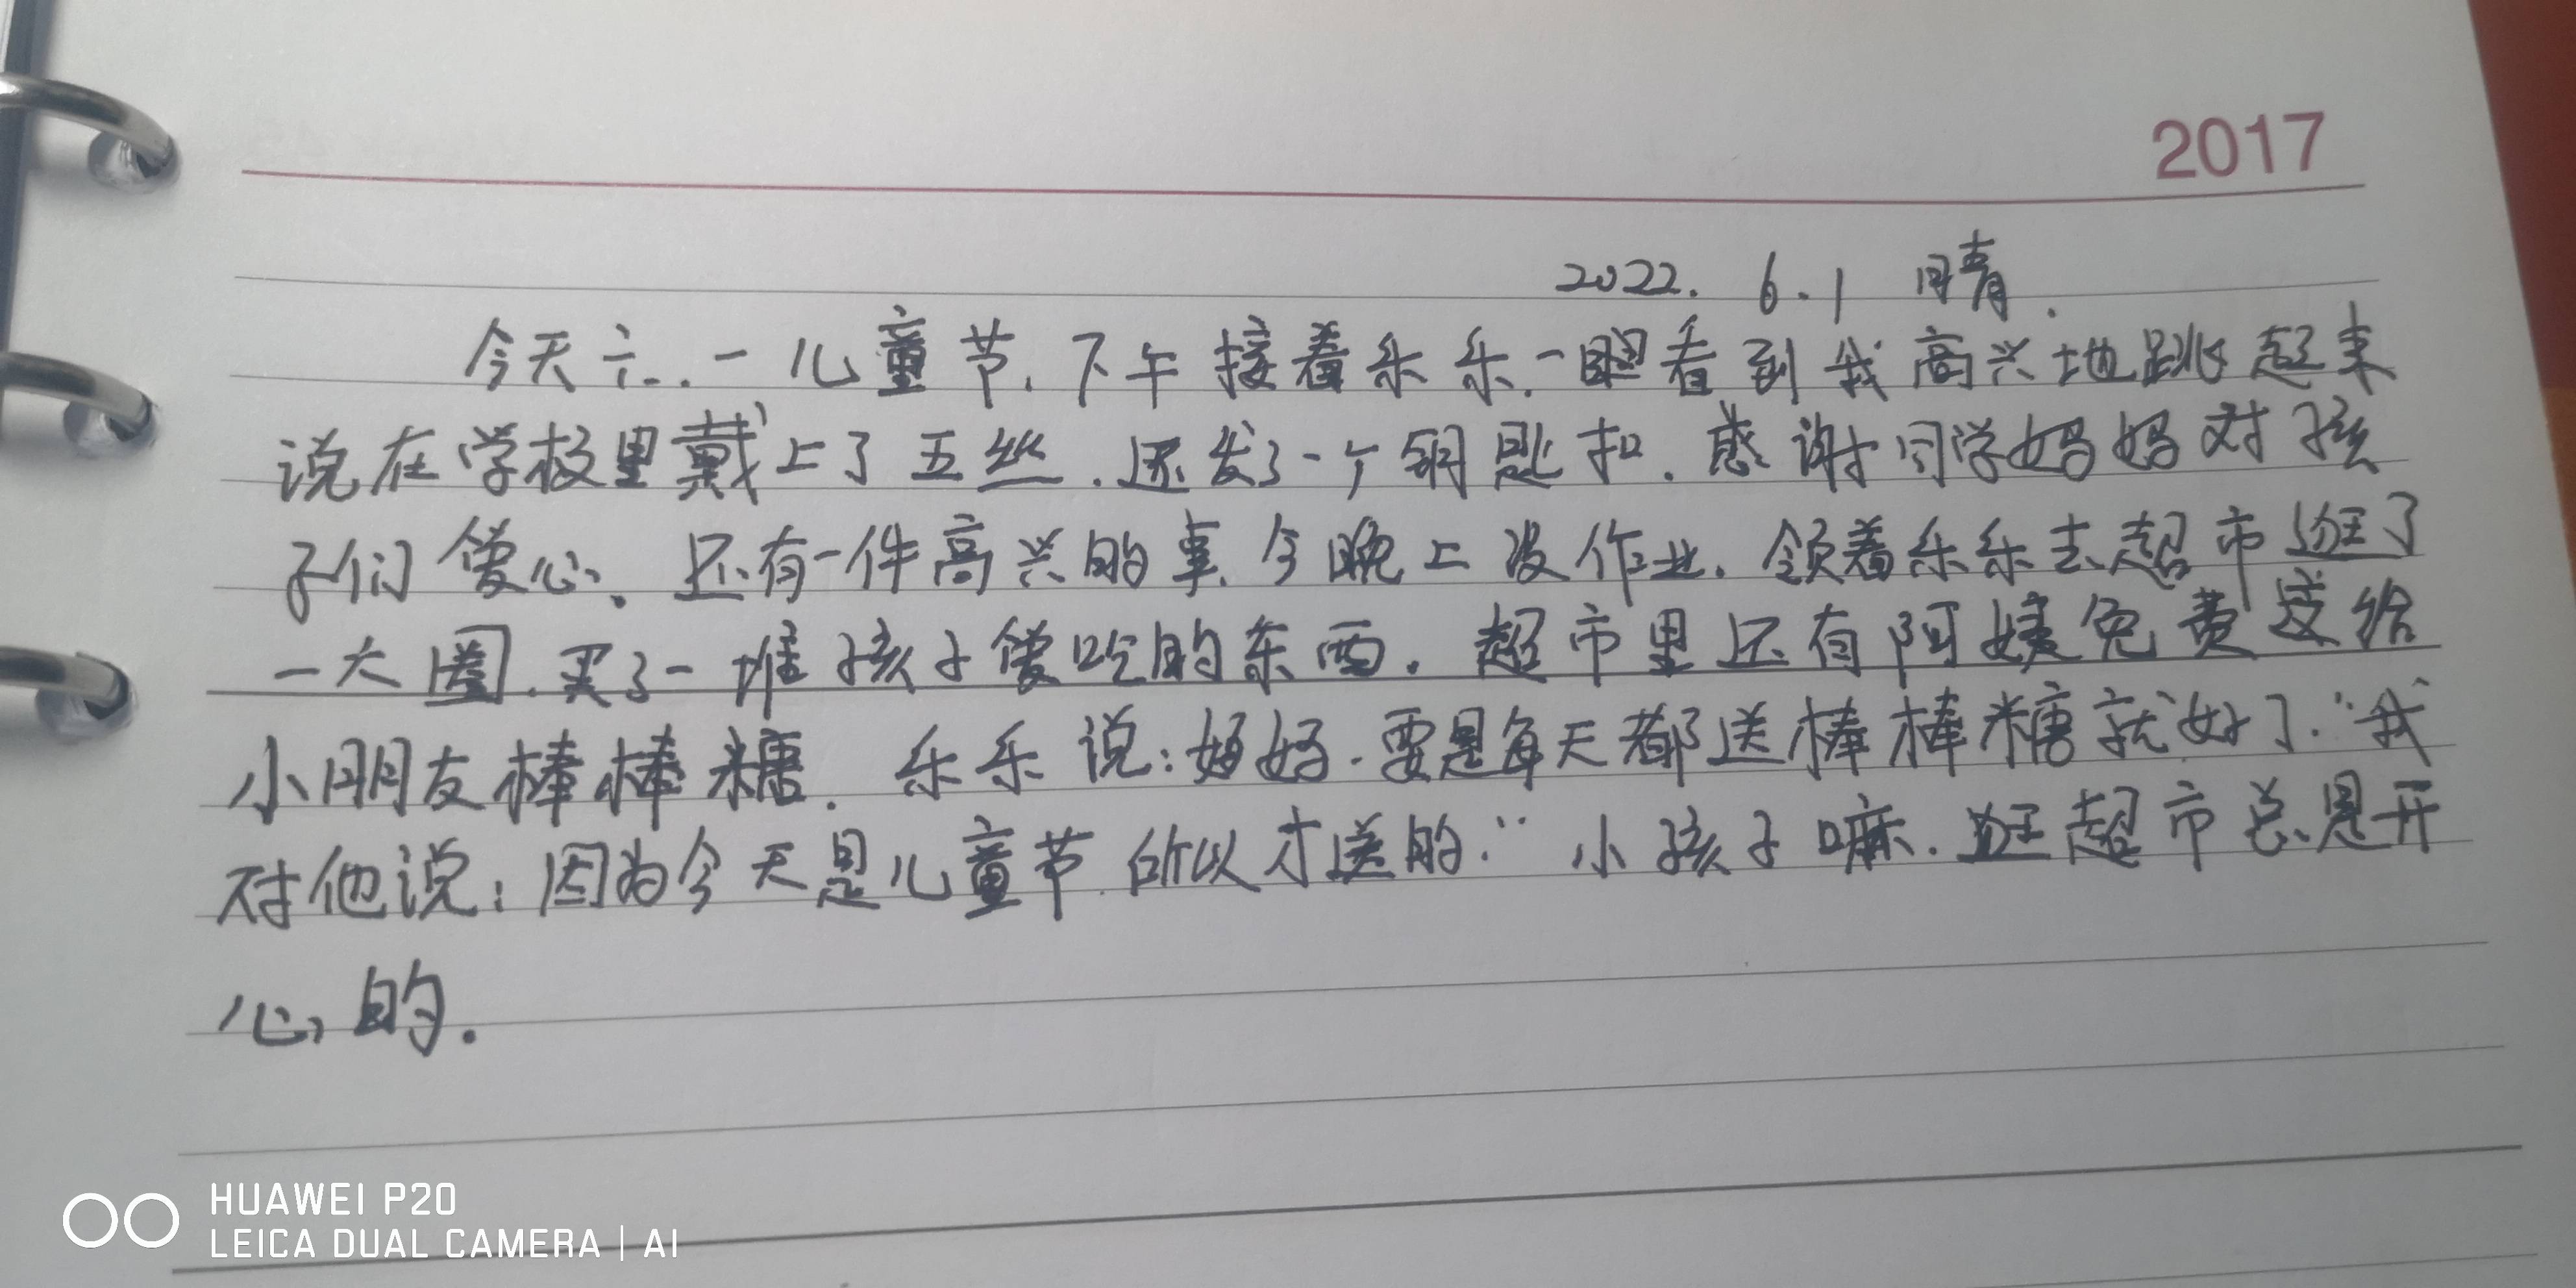 2017
2022. 6.1 晴.
今天六.一儿童节,下午接着乐乐.一眼看到我高兴地跳起来
说在学校里戴上了五丝.还发了一个钥匙扣.感谢同学妈妈对孩
子们爱心.还有一件高兴的事.今晚上没作业.领着乐乐去超市逛了
一大圈.买了一堆孩子爱吃的东西.超市里还有阿姨免费送给
小朋友棒棒糖.乐乐说:妈妈.要是每天都送棒棒糖就好了."我
对他说:因为今天是儿童节.所以才送的."小孩子嘛.逛超市总是开
心的.
HUAWEI P20
LEICA DUAL CAMERA | AI